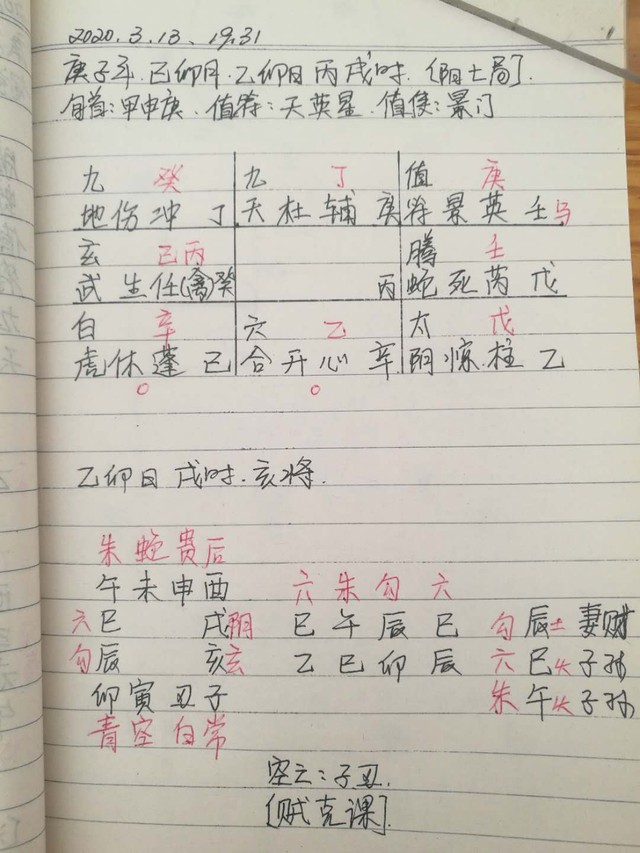 2020.3.13. 19:31
庚子年.己卯月.乙卯日丙戌时.[阳七局].
旬首:甲申庚.值符:天英星.值使:景门
九 癸 九 丁 值 庚
地伤冲丁 天杜辅庚 符景英壬马
玄 己丙 腾 壬
武生任(禽)癸 丙 蛇死芮戊
白 辛 六 乙 太 戊
虎休蓬己 合开心辛 阴惊柱乙
○ ○
乙卯日 戌时.亥将.
朱蛇贵后
午未申酉 六朱勾六
六巳 戌阴 巳午辰巳 勾辰土妻财
勾辰 亥玄 乙巳卯辰 六巳火子孙
卯寅丑子 朱午火子孙
青空白常
空亡:子丑.
[贼克课].